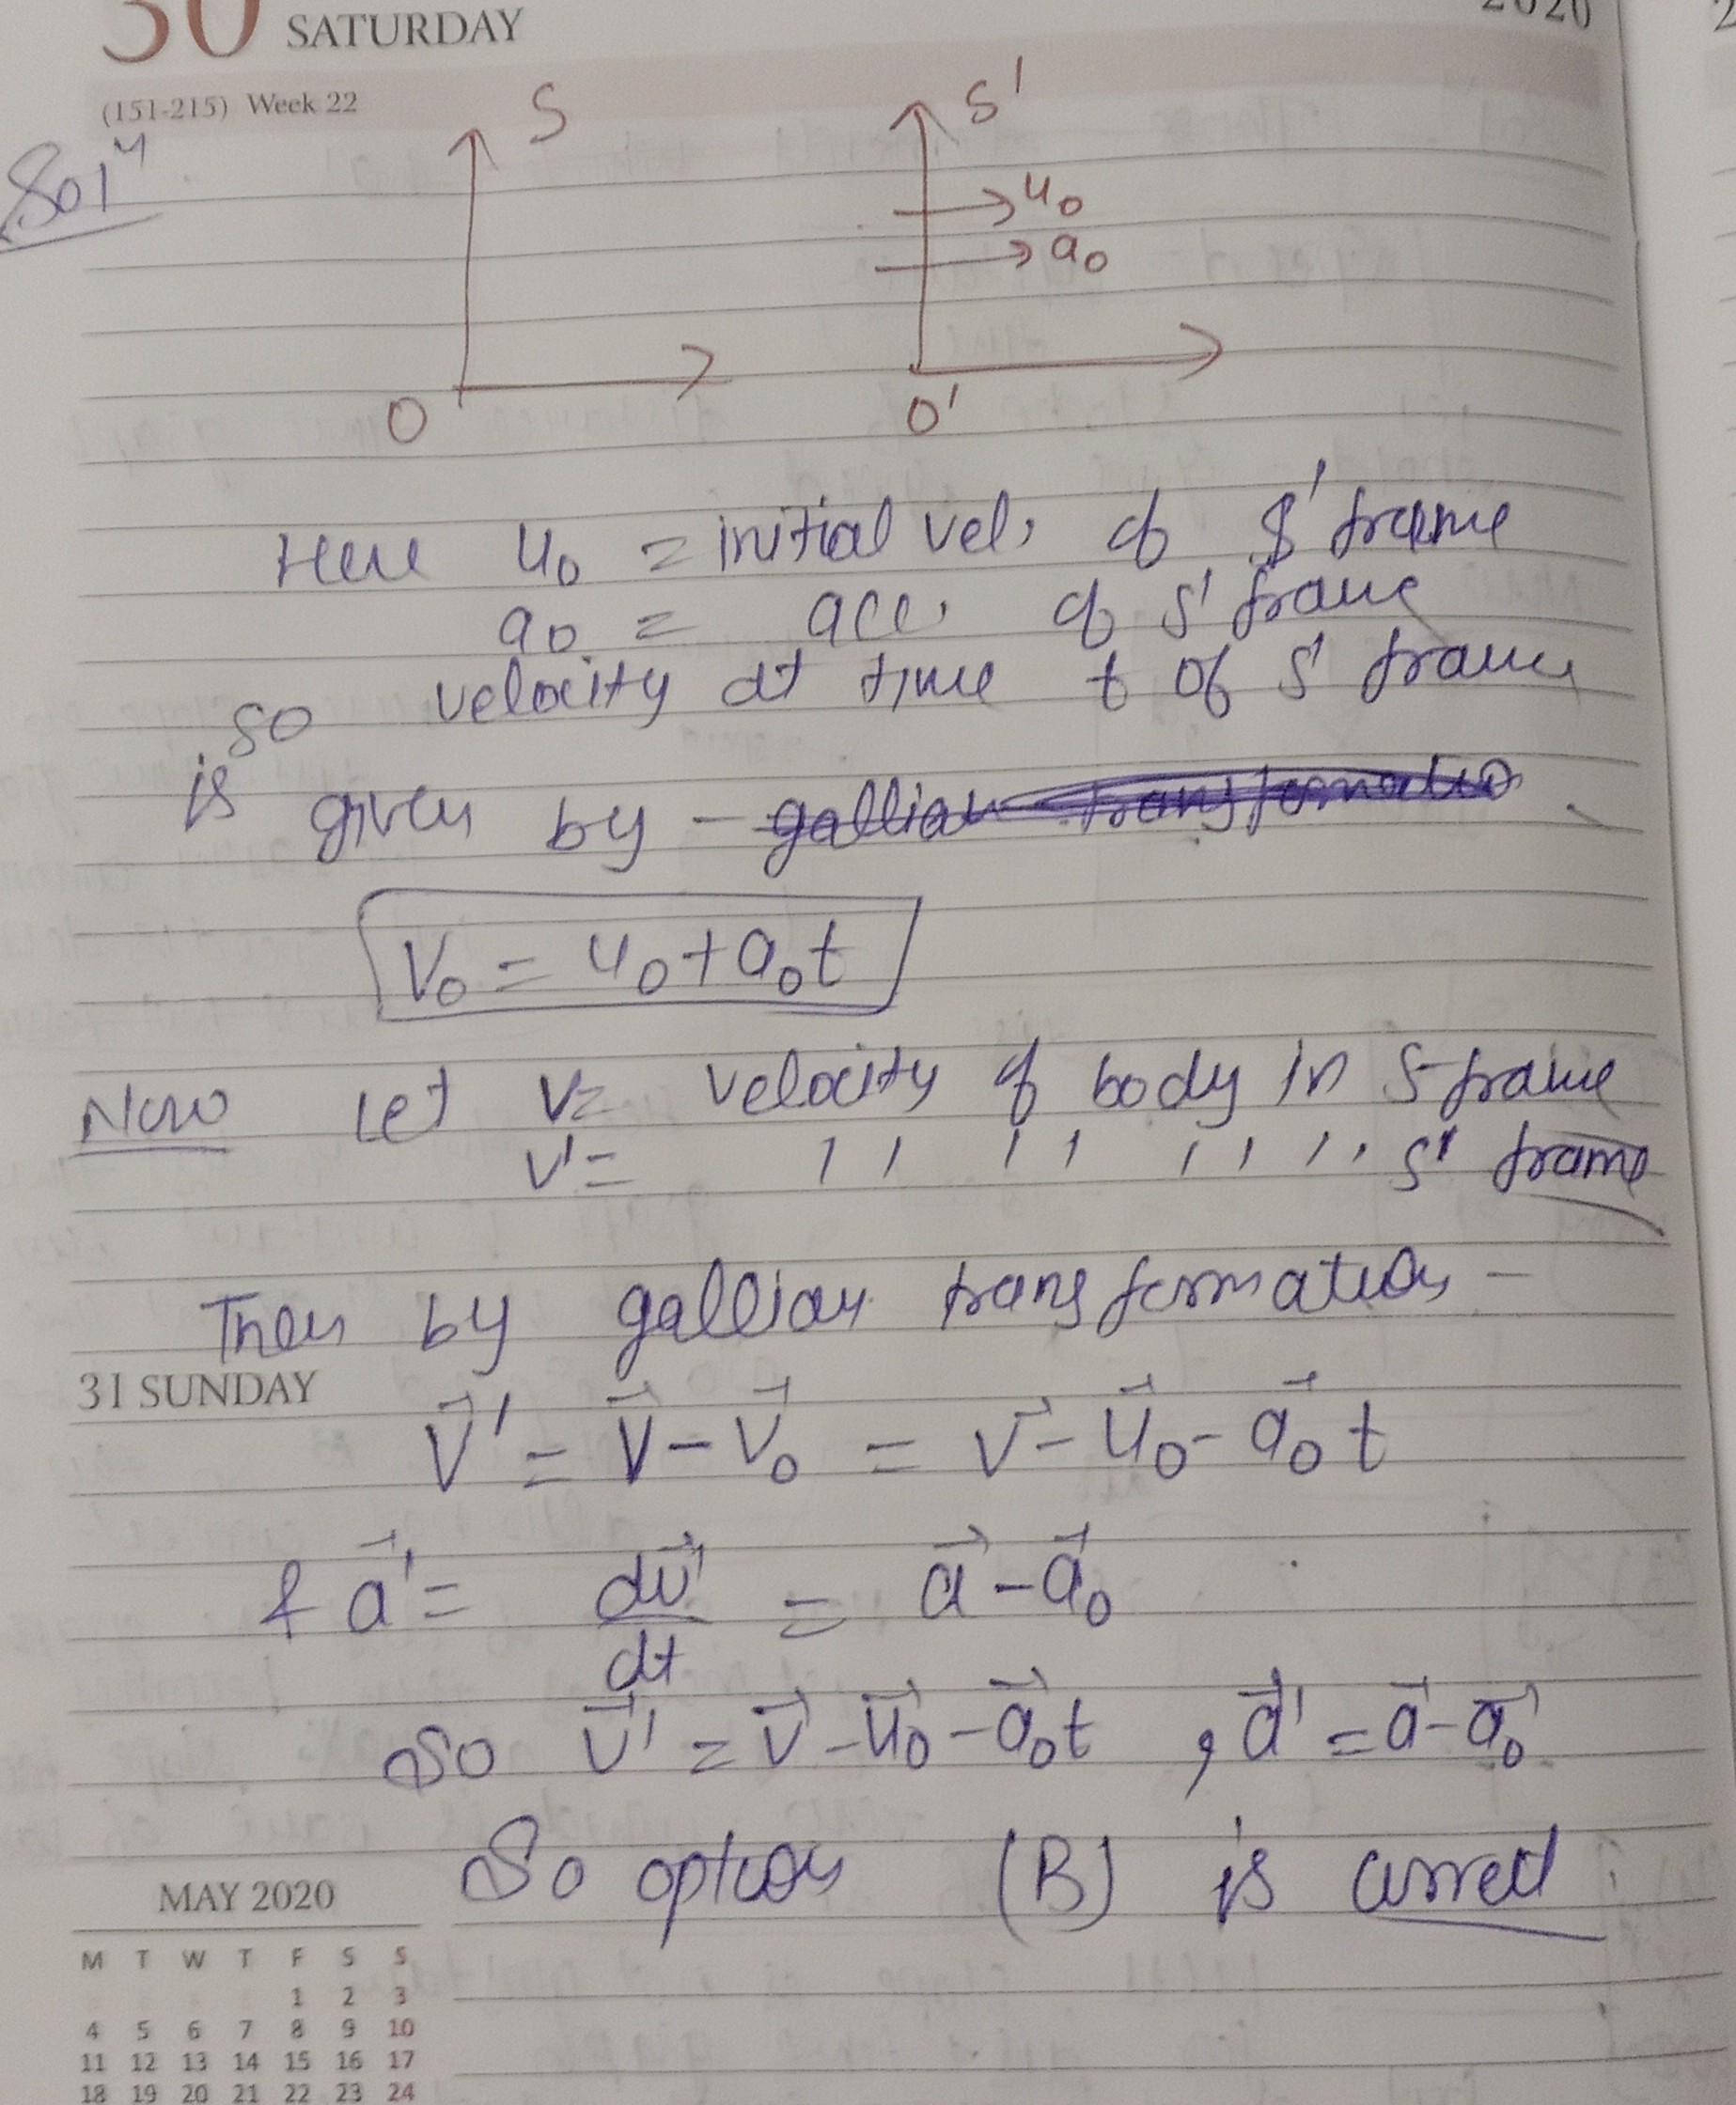 30 SATURDAY
2020
(151-215) Week 22
Solⁿ
S
S'
u₀
a₀
O
O'
Here u₀ = initial vel. of S' frame
a₀ = acc. of S' frame
so velocity at time t of S' frame
is given by - gallian transformation
V₀ = u₀ + a₀t
Now Let v = velocity of body in S-frame
v' = ,, ,, ,, ,, S' frame
Then by gallian transformation -
31 SUNDAY
V⃗' = V⃗ - V⃗₀ = V⃗ - u⃗₀ - a⃗₀ t
& a⃗' = dv⃗'/dt = a⃗ - a⃗₀
So v⃗' = v⃗ - u⃗₀ - a⃗₀t , a⃗' = a⃗ - a⃗₀
So option (B) is correct
MAY 2020
M T W T F S S
1 2 3
4 5 6 7 8 9 10
11 12 13 14 15 16 17
18 19 20 21 22 23 24